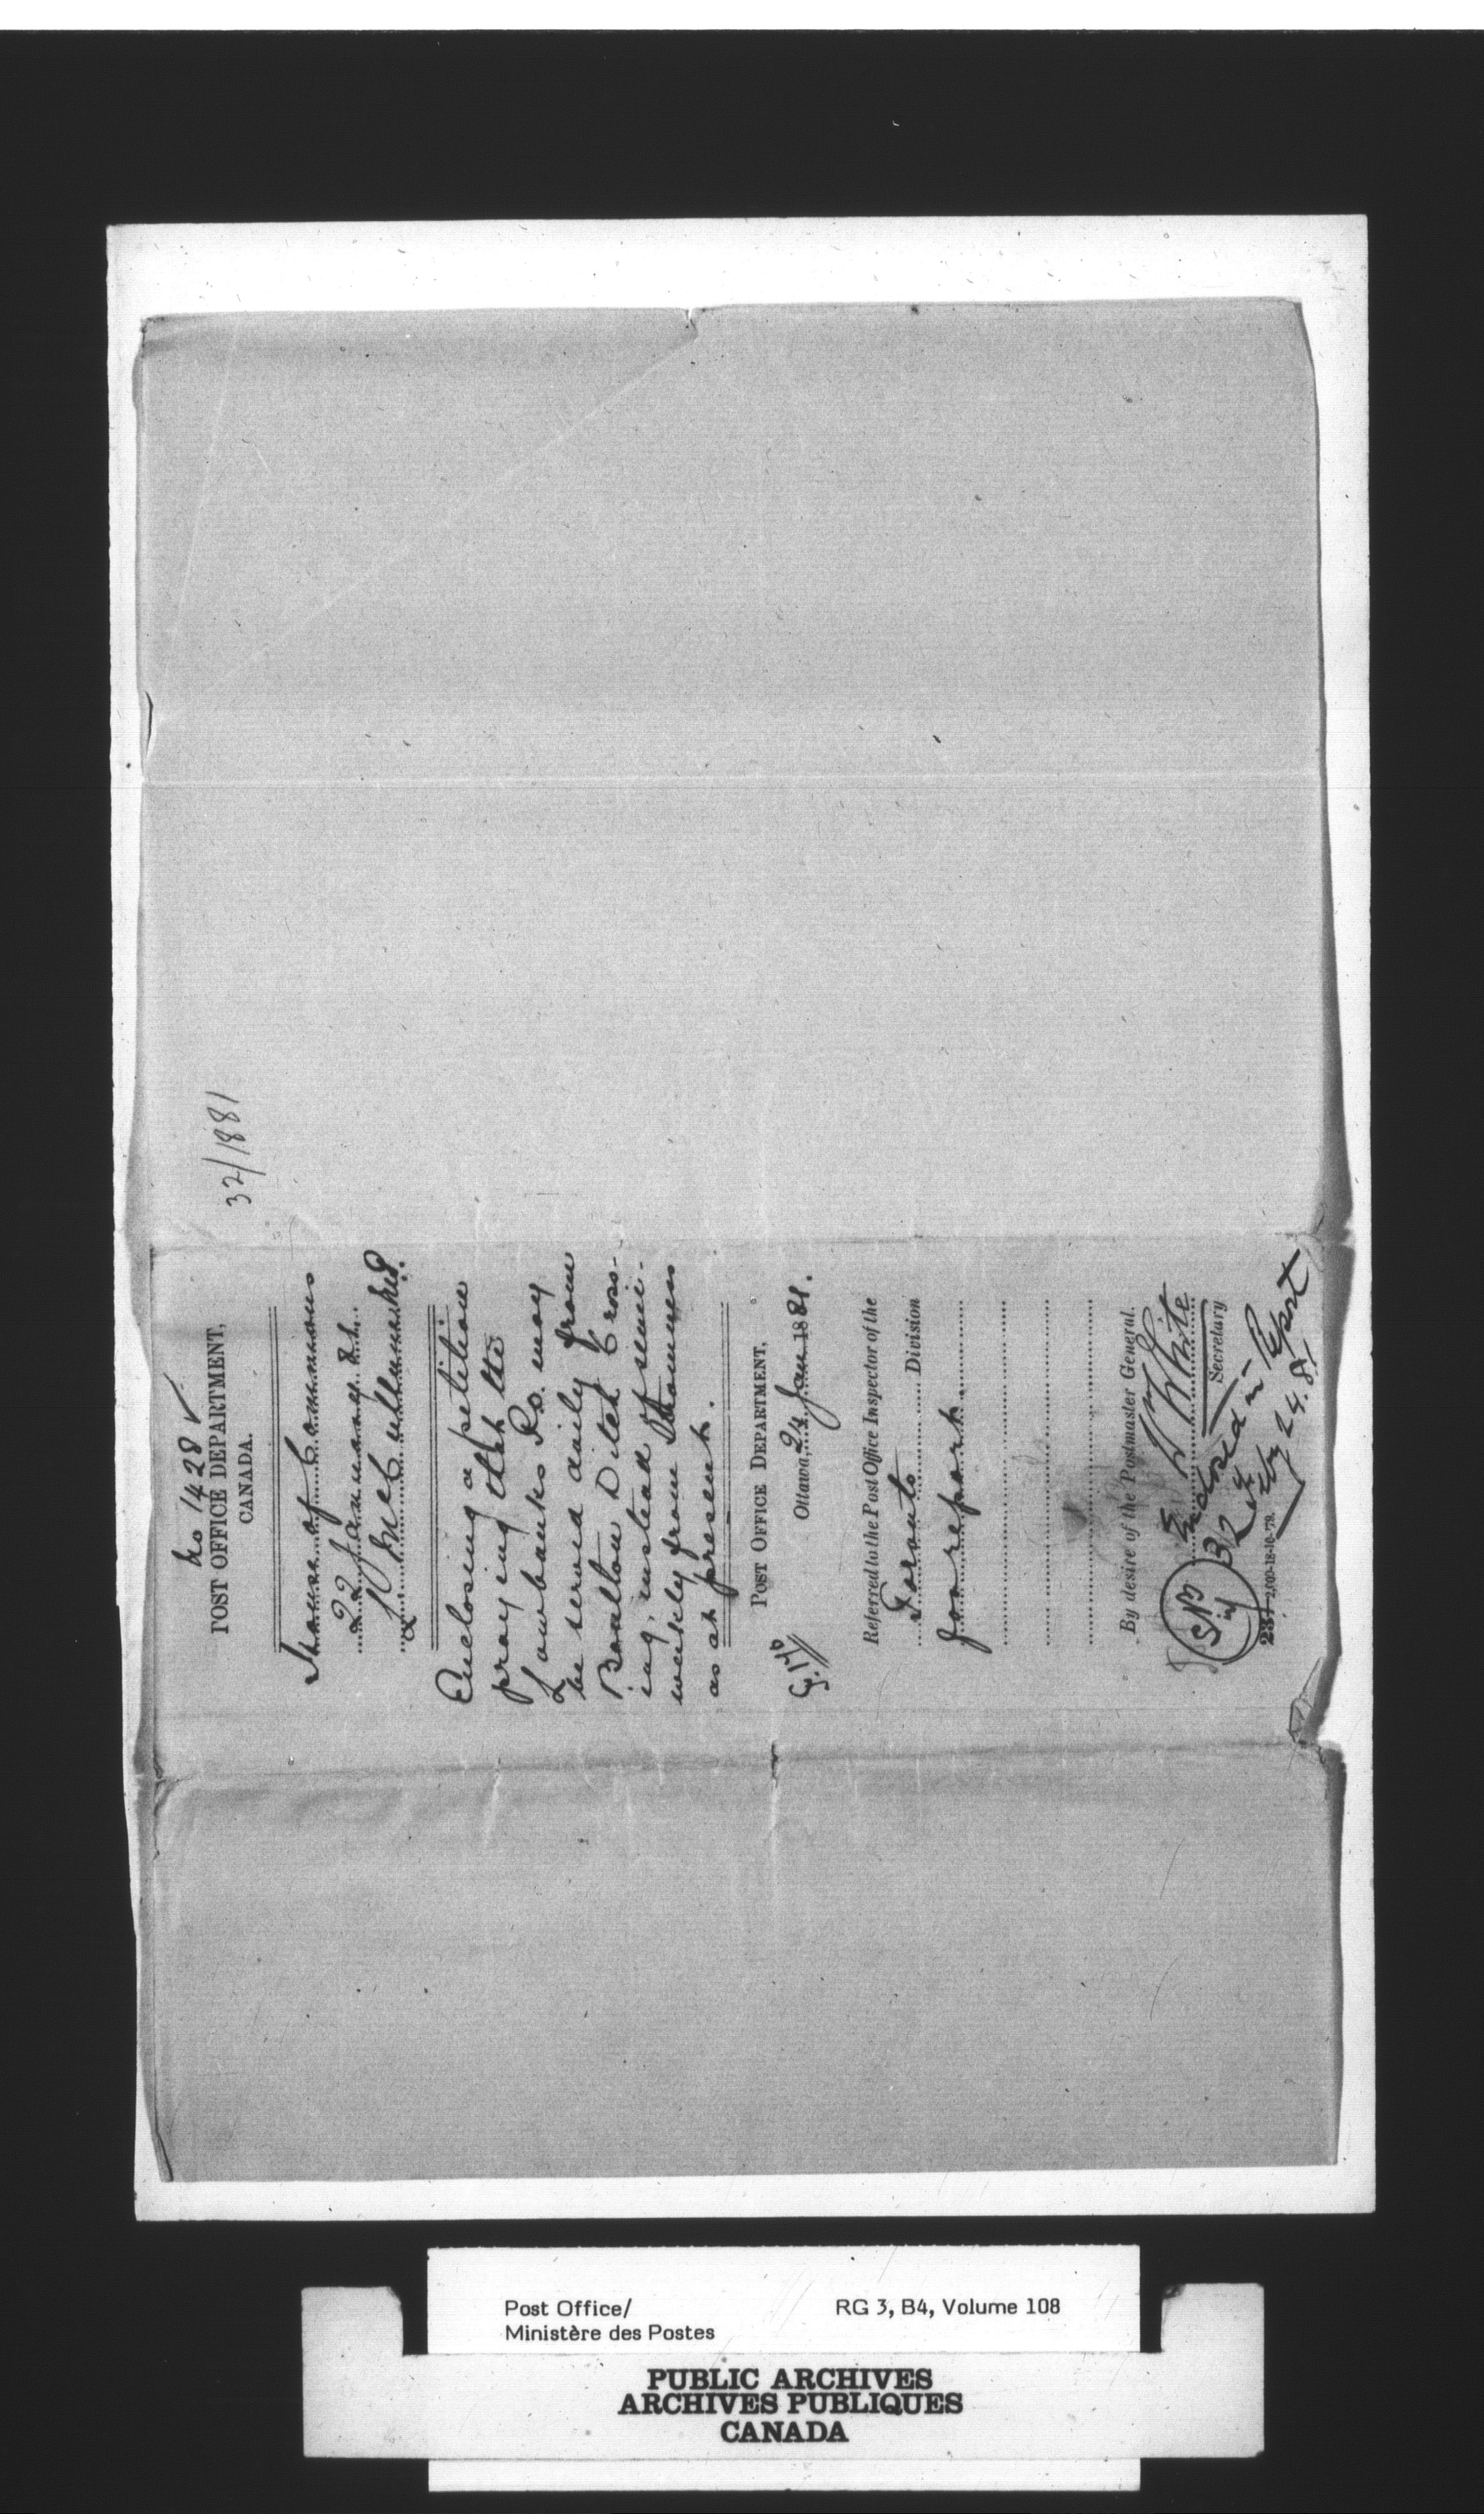 32/1881
No 1428 ✓
POST OFFICE DEPARTMENT,
CANADA.
House of Commons
22 January 81.
L McCallum MP.
Enclosing a petition
praying that the
Lowbanks P.O. may
be served daily from
Boulton Ditch Cross-
ing instead of semi-
weekly from Stromness
as at present.
POST OFFICE DEPARTMENT,
Ottawa, 24 Jan 1881.
Referred to the Post Office Inspector of the
Toronto Division
for report.
By desire of the Postmaster General.
White
Secretary
Enclosed in Report
24.8
231 2,000-18-10-79.
Post Office/
Ministère des Postes
RG 3, B4, Volume 108
PUBLIC ARCHIVES
ARCHIVES PUBLIQUES
CANADA